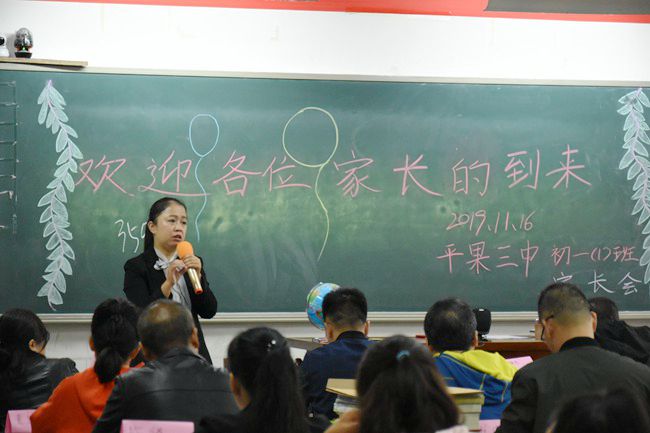 欢迎各位家长的到来
2019.11.16
平果三中 初一(1)班
家长会